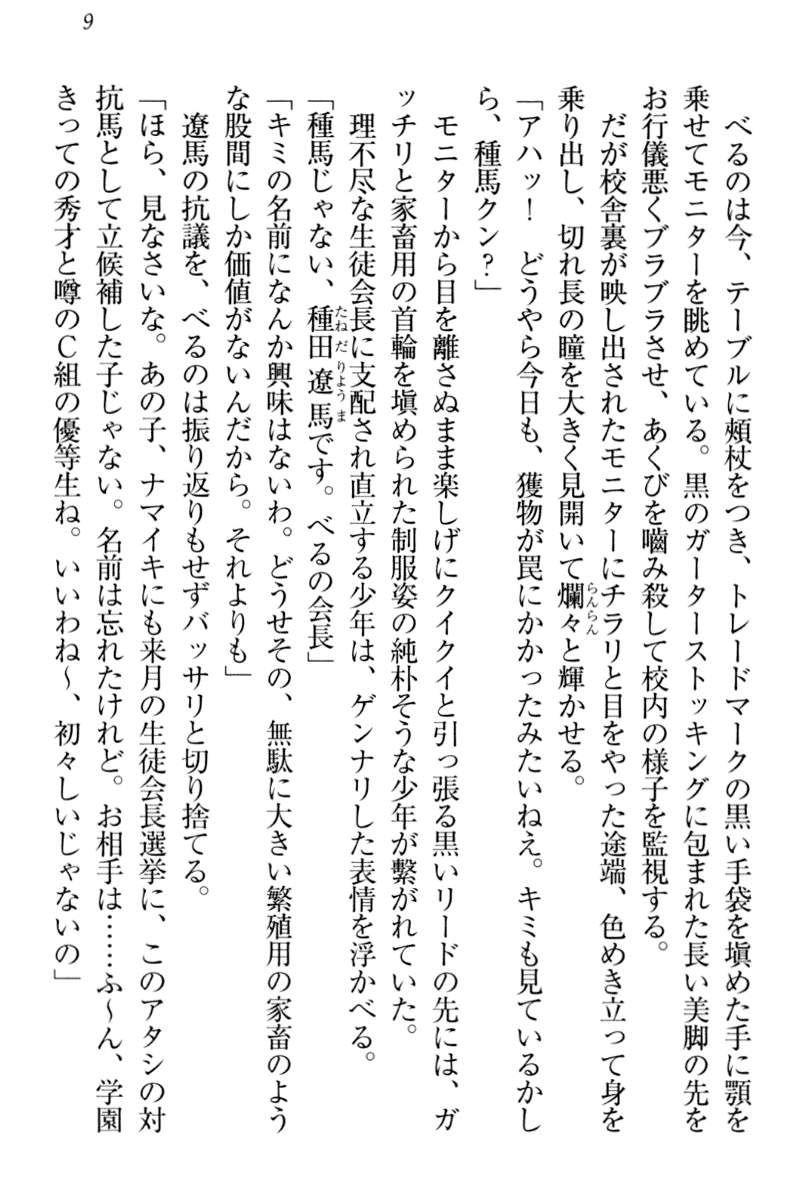 9
べるのは今、テーブルに頰杖をつき、トレードマークの黒い手袋を塡めた手に顎を
乗せてモニターを眺めている。黒のガーターストッキングに包まれた長い美脚の先を
お行儀悪くブラブラさせ、あくびを嚙み殺して校内の様子を監視する。
だが校舎裏が映し出されたモニターにチラリと目をやった途端、色めき立って身を
乗り出し、切れ長の瞳を大きく見開いて爛々と輝かせる。
らんらん
「アハッ!　どうやら今日も、獲物が罠にかかったみたいねえ。キミも見ているかし
ら、種馬クン?」
モニターから目を離さぬまま楽しげにクイクイと引っ張る黒いリードの先には、ガ
ッチリと家畜用の首輪を塡められた制服姿の純朴そうな少年が繫がれていた。
理不尽な生徒会長に支配され直立する少年は、ゲンナリした表情を浮かべる。
「種馬じゃない、種田遼馬です。べるの会長」
たねだりょうま
「キミの名前になんか興味はないわ。どうせその、無駄に大きい繁殖用の家畜のよう
な股間にしか価値がないんだから。それよりも」
遼馬の抗議を、べるのは振り返りもせずバッサリと切り捨てる。
「ほら、見なさいな。あの子、ナマイキにも来月の生徒会長選挙に、このアタシの対
抗馬として立候補した子じゃない。名前は忘れたけど。お相手は……ふ～ん、学園
きっての秀才と噂のC組の優等生ね。いいわね～、初々しいじゃないの」